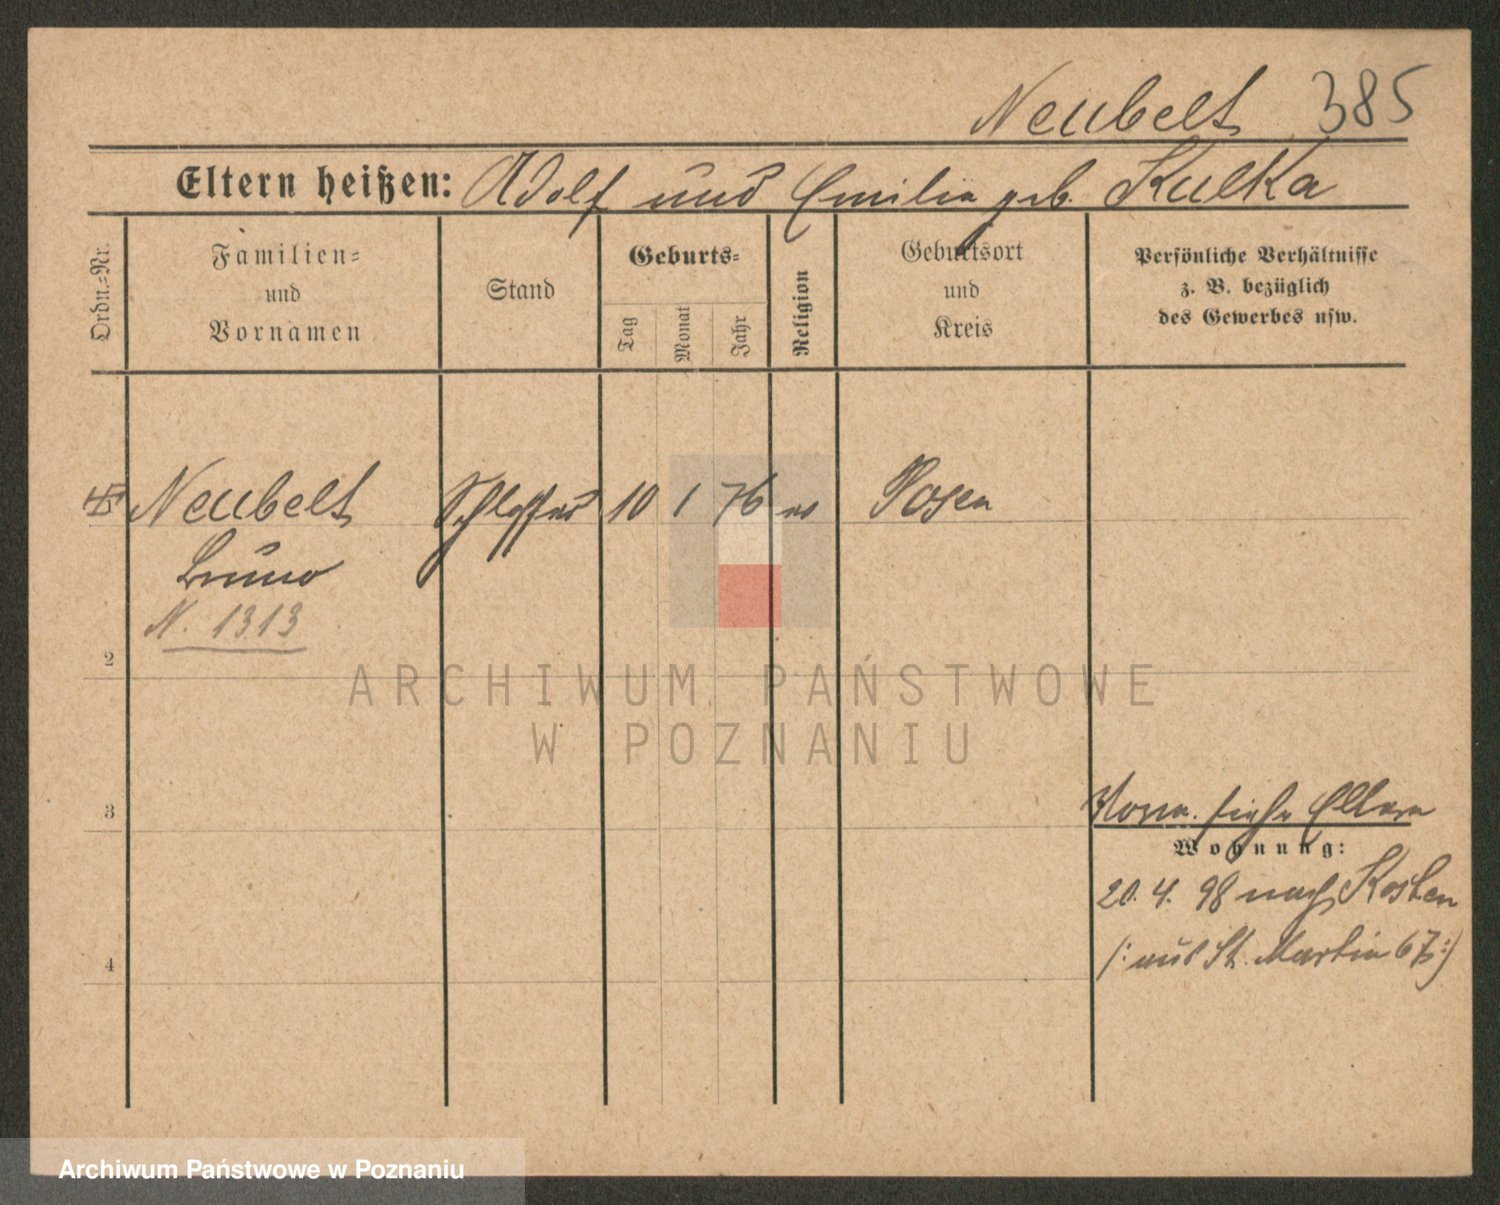 Neubelt 385
Eltern heißen: Adolf und Emilie geb. Kulka
Ordn.-Nr.
Familien-
und
Vornamen
Stand
Geburts-
Tag
Monat
Jahr
Religion
Geburtsort
und
Kreis
Persönliche Verhältnisse
z. B. bezüglich
des Gewerbes usw.
Neubelt Schlosser 10 1 76 ev Posen
Bruno
N. 1313
2
3
siehe Eltern
Wohnung:
20. 4. 98 nach Kosten
4
(: aus St. Martin 67 :)
ARCHIWUM PAŃSTWOWE
W POZNANIU
Archiwum Państwowe w Poznaniu